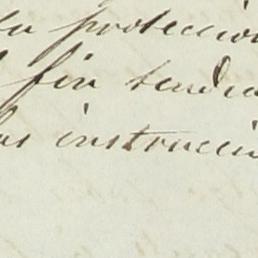 la protección
fin tende
las instruccion